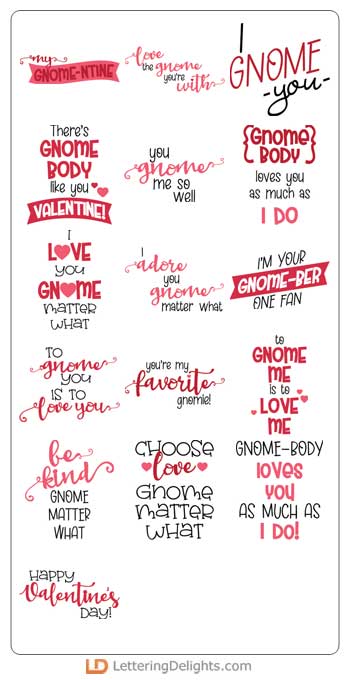 my
GNOME-NTINE
love
the gnome
you're
with
I
GNOME
-you-
There's
GNOME
BODY
like you
VALENTINE!
you
gnome
me so
well
{Gnome
BODY}
loves you
as much as
I DO
I
LOVE
YOU
GNOME
MATTER
WHAT
I
adore
you
gnome
matter what
I'M YOUR
GNOME-BER
ONE FAN
TO
gnome
YOU
IS TO
love you
you're my
favorite
gnomie!
to
GNOME
ME
is to
LOVE
ME
be
kind
GNOME
MATTER
WHAT
CHOOSE
love
GNOME
MATTER
WHAT
GNOME-BODY
loves
you
AS MUCH AS
I DO!
HAPPY
Valentine's
DAY!
LD LetteringDelights.com